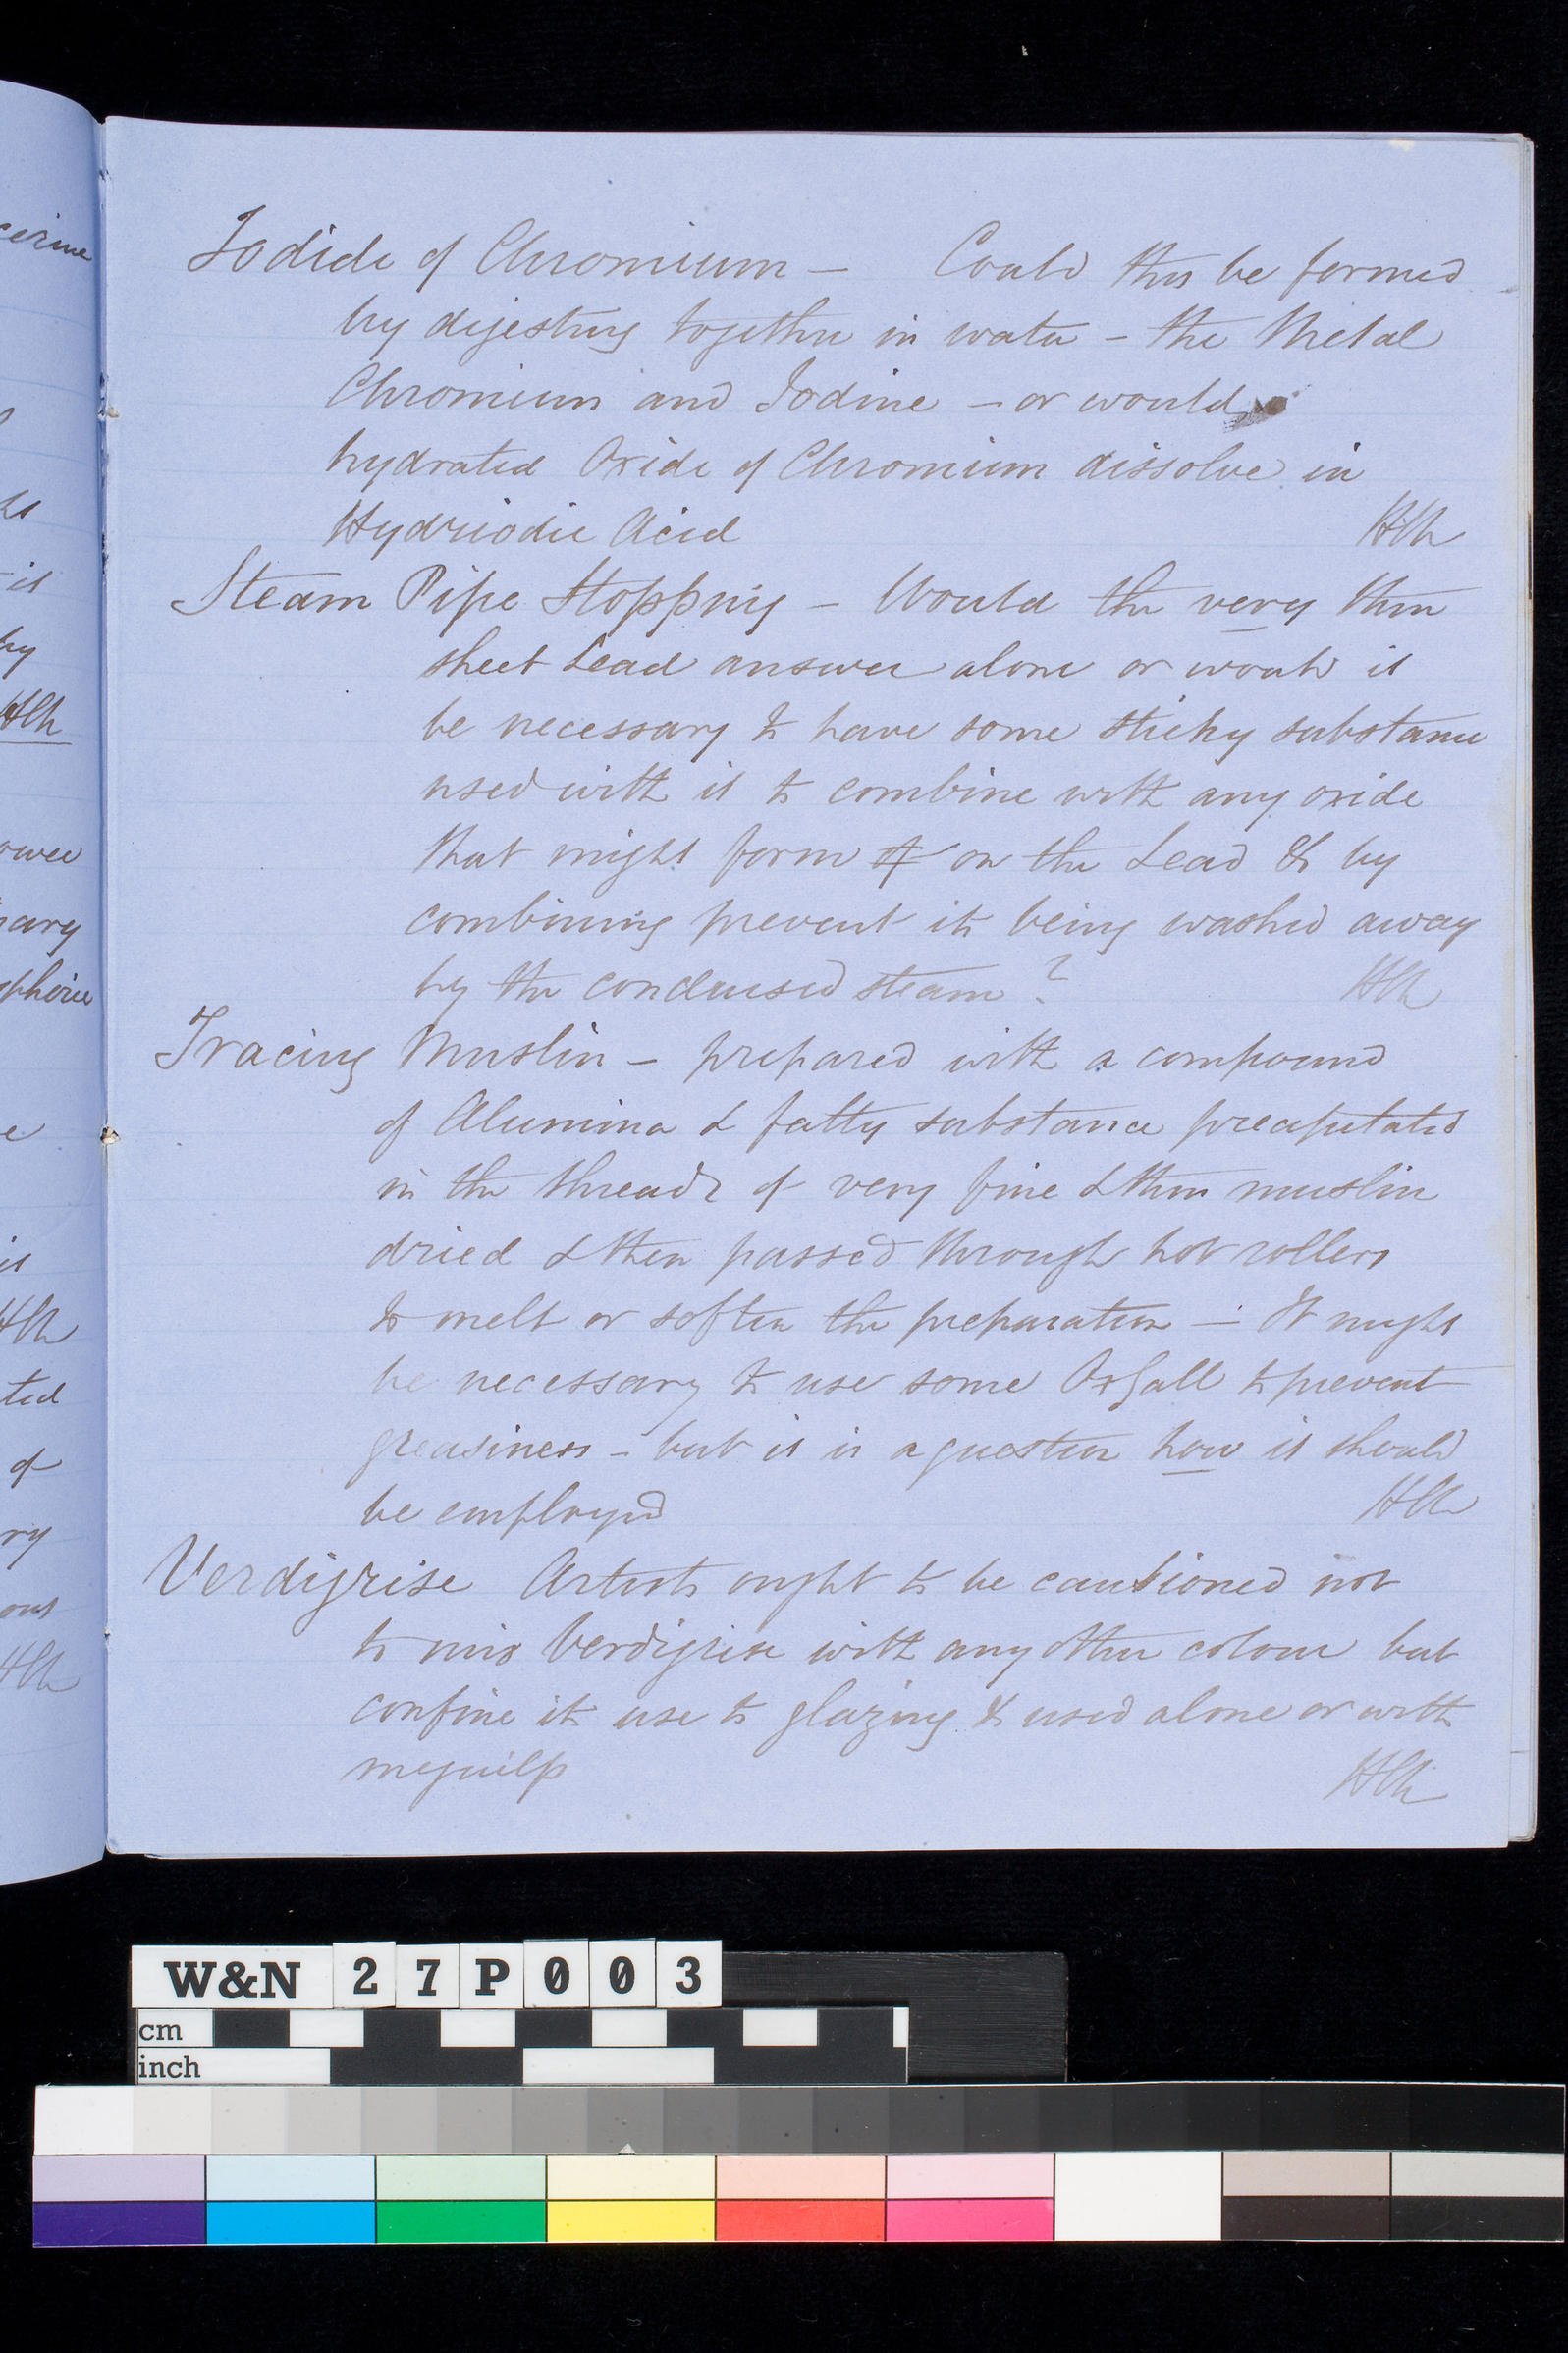 Iodide of Chromium — Could this be formed
by digesting together in water — the Metal
Chromium and Iodine — or would
hydrated Oxide of Chromium dissolve in
Hydriodic Acid HCh
Steam Pipe Stopping — Would the very thin
sheet Lead answer alone or would it
be necessary to have some sticky substance
used with it to combine with any oxide
that might form on the Lead & by
combining prevent its being washed away
by the condensed steam ? HCh
Tracing Muslin — prepared with a compound
of Alumina & fatty substance precipitated
in the threads of very fine & thin muslin
dried & then passed through hot rollers
to melt or soften the preparation — It might
be necessary to use some Ox Gall to prevent
greasiness — but it is a question how it should
be employed HCh
Verdigrise Artists ought to be cautioned not
to mix Verdigrise with any other colour but
confine its use to glazing & used alone or with
meguilp HCh
cerine
its
it
by
HCh
ower
sary
sphoric
e
it
HCh
ted
of
ry
ous
HCh
W&N 27P003
cm
inch